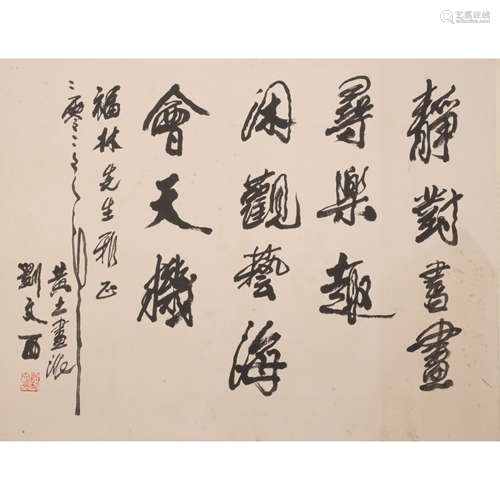 靜對書畫
尋樂趣
闲觀藝海
會天機
福林先生雅正
二零
黄土畫派
劉文西